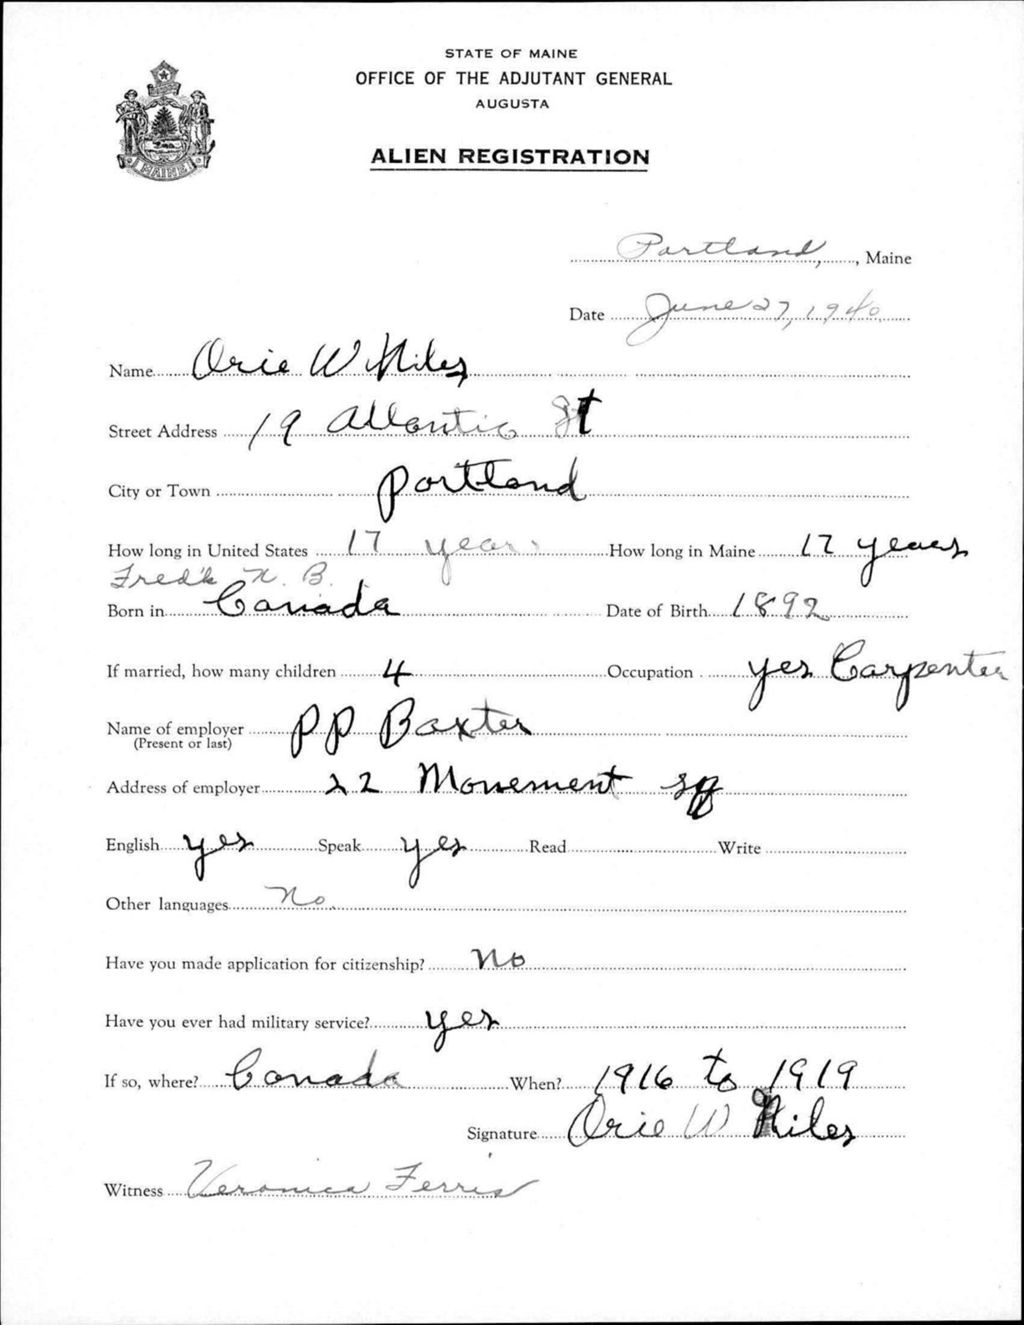 STATE OF MAINE
OFFICE OF THE ADJUTANT GENERAL
AUGUSTA
ALIEN REGISTRATION
MAINE
Portland, Maine
Date June 27, 1940
Name Orie W Niles
Street Address 19 Atlantic St
City or Town Portland
How long in United States 17 years How long in Maine 17 years
Fred'k N. B.
Born in Canada Date of Birth 1892
If married, how many children 4 Occupation yes Carpenter
Name of employer PP Baxter
(Present or last)
Address of employer 22 Monement sq
English yes Speak yes Read Write
Other languages No
Have you made application for citizenship? No
Have you ever had military service? yes
If so, where? Canada When? 1916 to 1919
Signature Orie W Niles
Witness Veronica Ferris